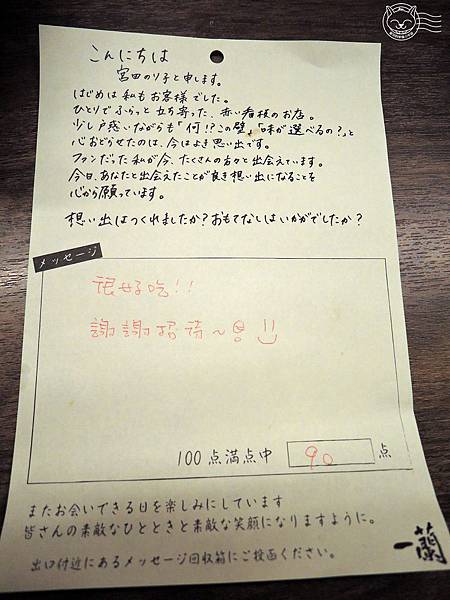 こんにちは
宮田のり子と申します。
はじめは私もお客様でした。
ひとりでふらっと立ち寄った、赤い看板のお店。
少し戸惑いながらも「何!?この壁」「味が選べるの?」と
心おどらせたのは、今はよき思い出です。
ファンだった私が今、たくさんの方々と出会えています。
今日、あなたと出会えたことが良き想い出になることを
心から願っています。
想い出はつくれましたか?おもてなしはいかがでしたか?
メッセージ
很好吃!!
謝謝招待~
100点満点中 90 点
またお会いできる日を楽しみにしています
皆さんの素敵なひとときと素敵な笑顔になりますように。
出口付近にあるメッセージ回収箱にご投函ください。
一蘭